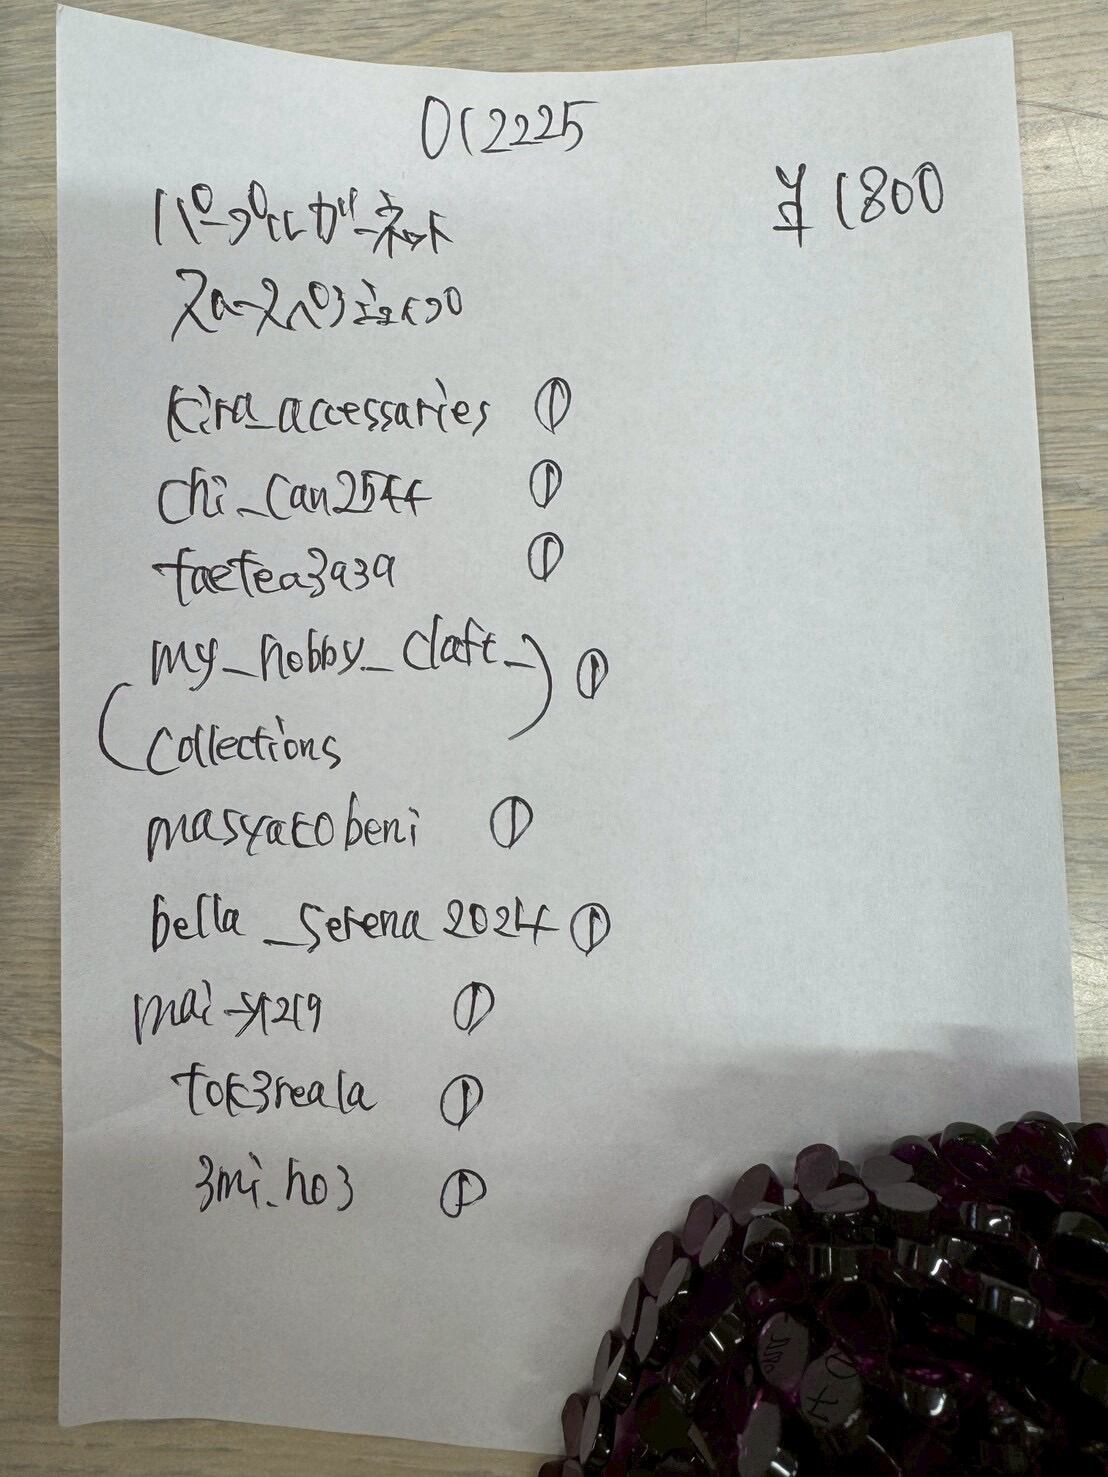 012225
パープルガーネット
¥1800
kira_accessaries ①
chi_can2544 ①
taetea3a3a ①
my_hobby_claft_
collections ①
masyakobeni ①
bella_serena2024 ①
mai ①
tok3reala ①
3mi.ho3 ①